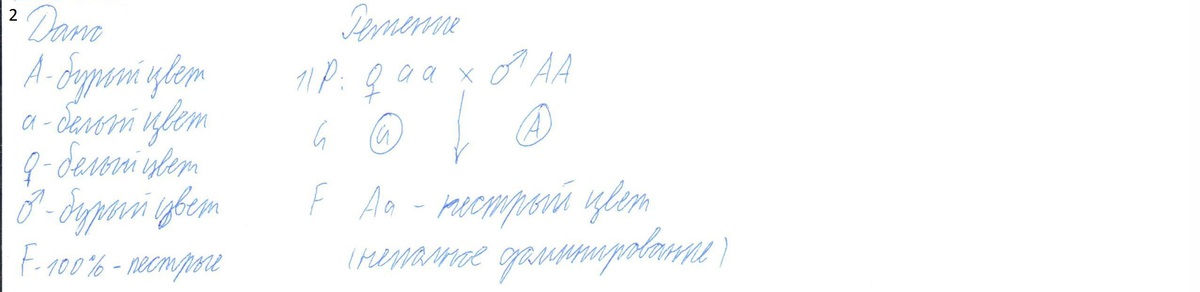 2
Дано
А - бурый цвет
а - белый цвет
♀ - белый цвет
♂ - бурый цвет
F - 100% - пестрые
Решение
1) P: ♀ aa × ♂ AA
G a A
F Aa - пестрый цвет
(неполное доминирование)